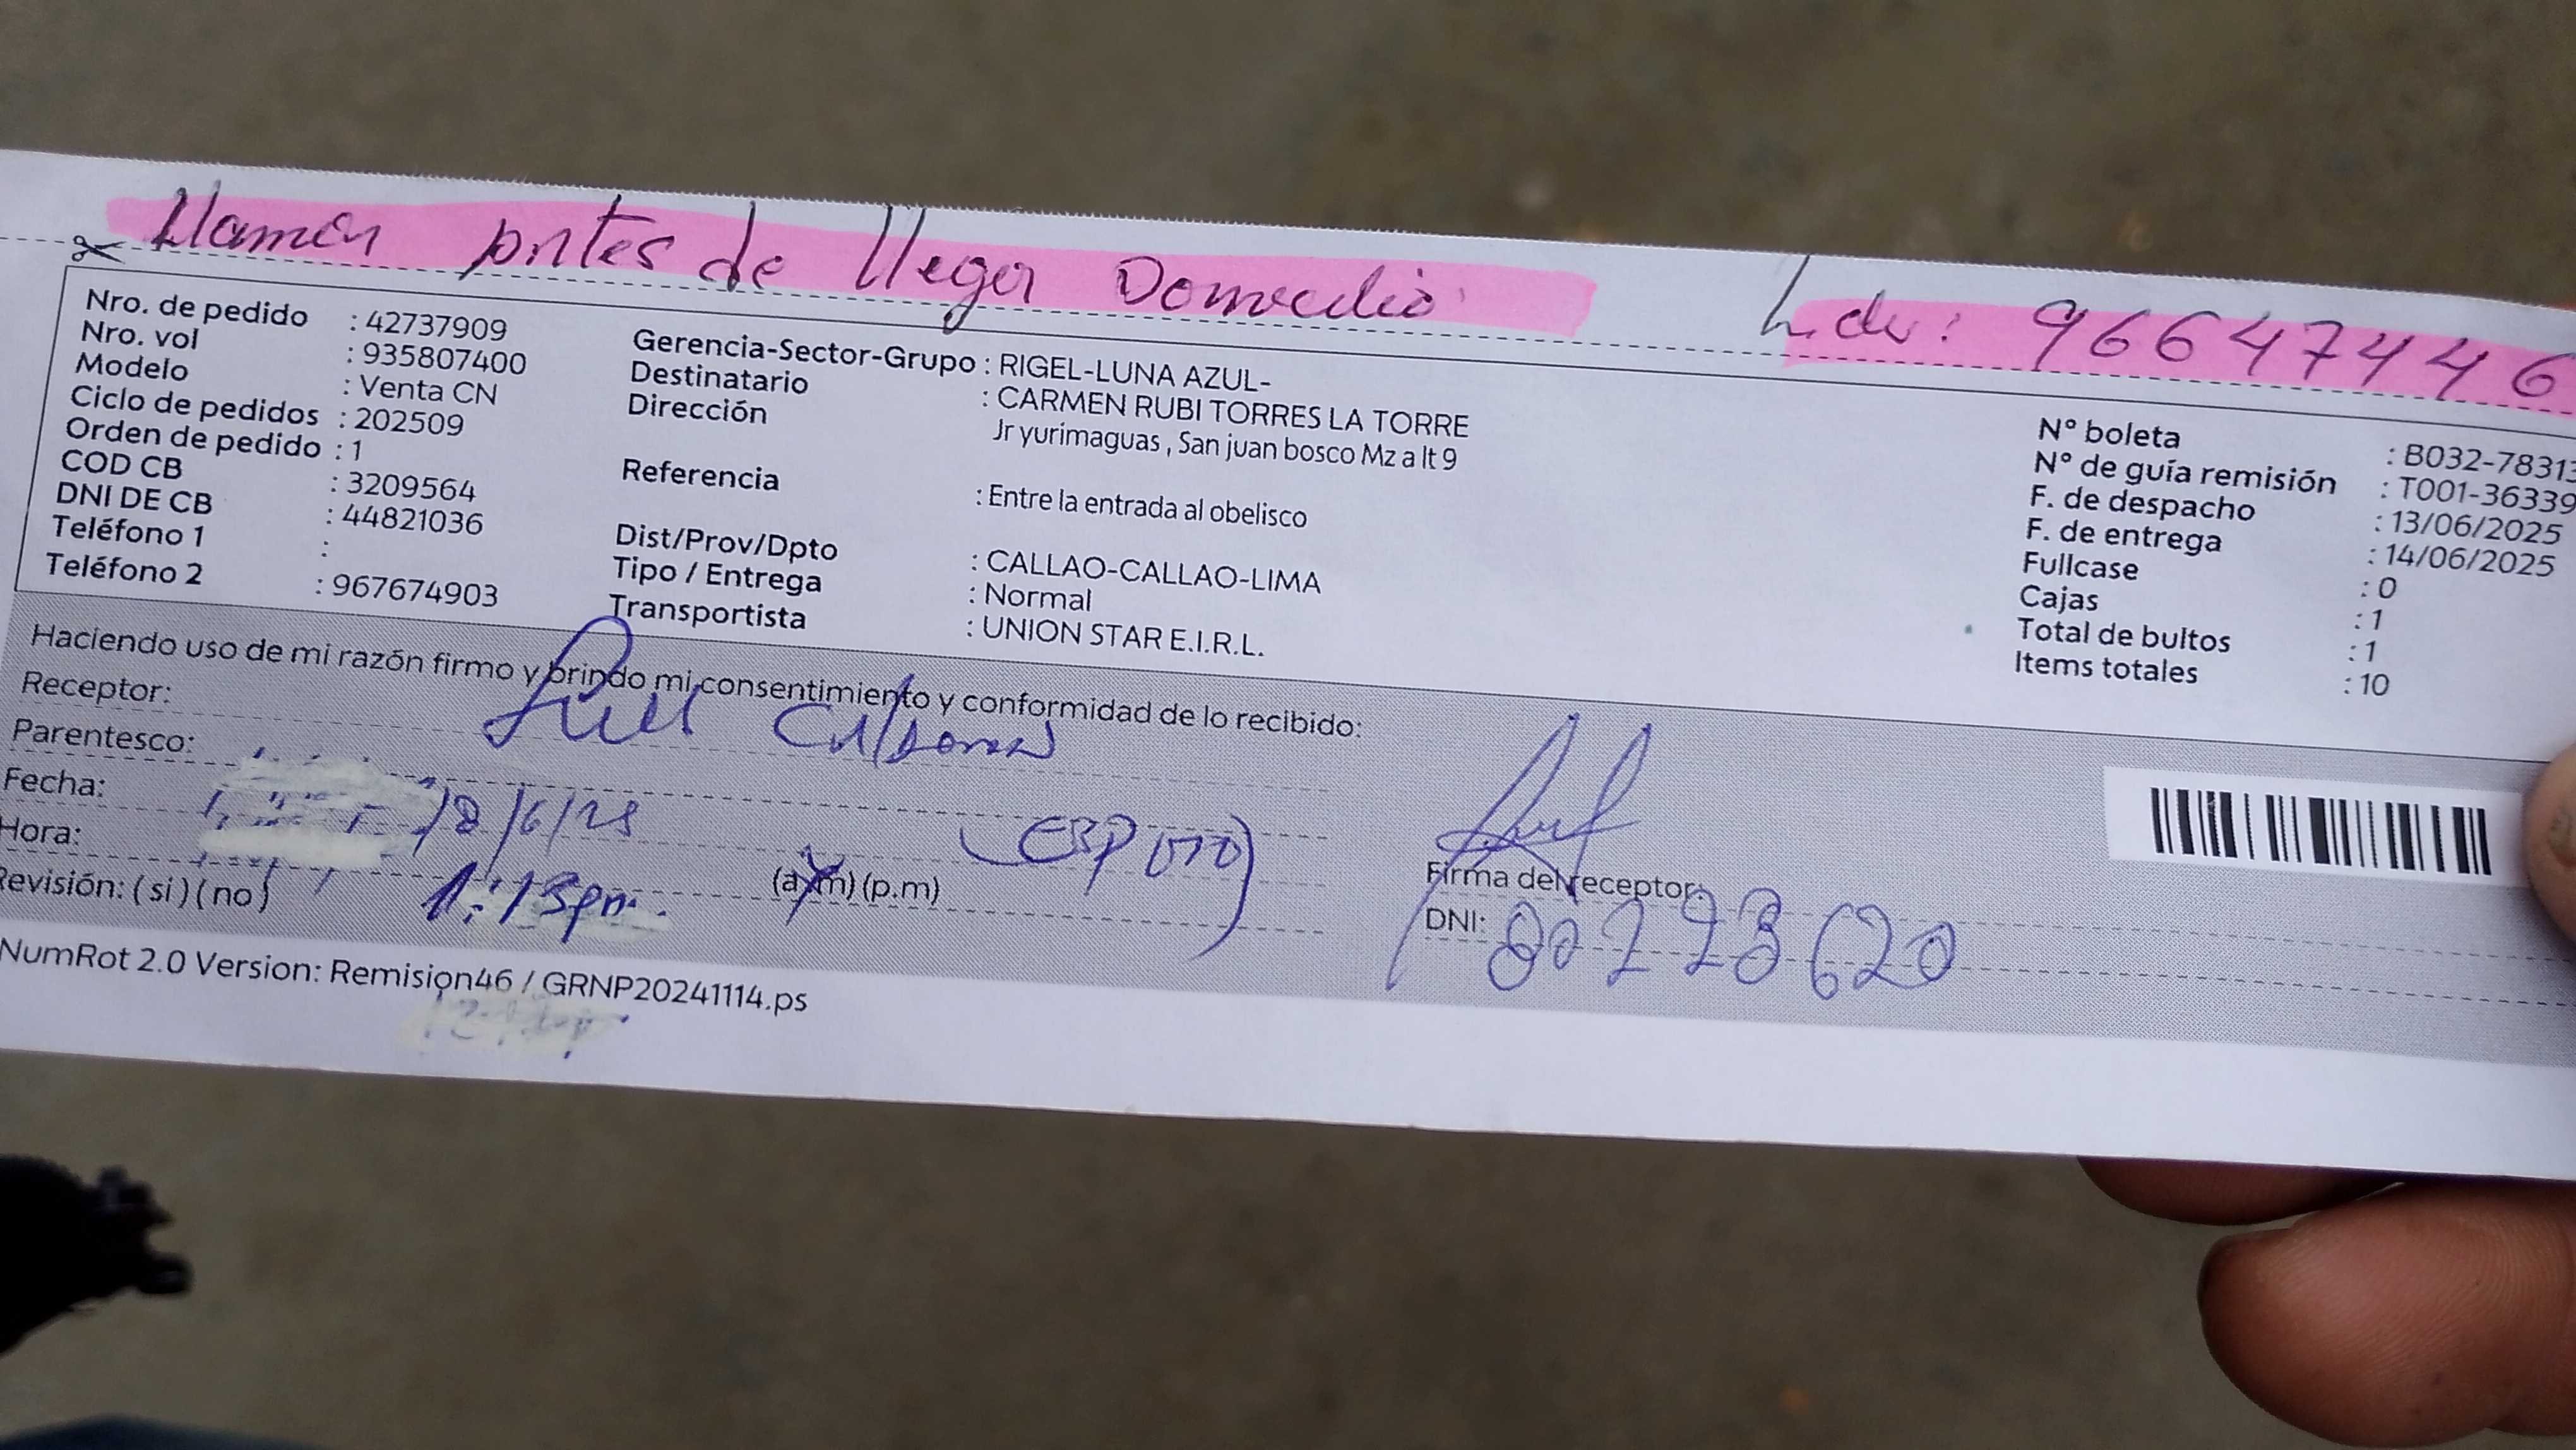 Llamar antes de llegar Domicilio Lder: 966474460
Nro. de pedido : 42737909
Nro. vol : 935807400
Modelo : Venta CN
Ciclo de pedidos : 202509
Orden de pedido : 1
COD CB : 3209564
DNI DE CB : 44821036
Teléfono 1 :
Teléfono 2 : 967674903
Gerencia-Sector-Grupo : RIGEL-LUNA AZUL-
Destinatario : CARMEN RUBI TORRES LA TORRE
Dirección Jr yurimaguas , San juan bosco Mz a lt 9
Referencia : Entre la entrada al obelisco
Dist/Prov/Dpto : CALLAO-CALLAO-LIMA
Tipo / Entrega : Normal
Transportista : UNION STAR E.I.R.L.
N° boleta : B032-78313
N° de guía remisión : T001-36339
F. de despacho : 13/06/2025
F. de entrega : 14/06/2025
Fullcase : 0
Cajas : 1
Total de bultos : 1
Items totales : 10
Haciendo uso de mi razón firmo y brindo mi consentimiento y conformidad de lo recibido:
Receptor:
Parentesco: (Esposo)
Fecha: 18/6/25
Hora: 1:15pm (a.m) (p.m)
Revisión: ( si ) ( no )
Firma del receptor:
DNI: 80223620
NumRot 2.0 Version: Remision46 / GRNP20241114.ps